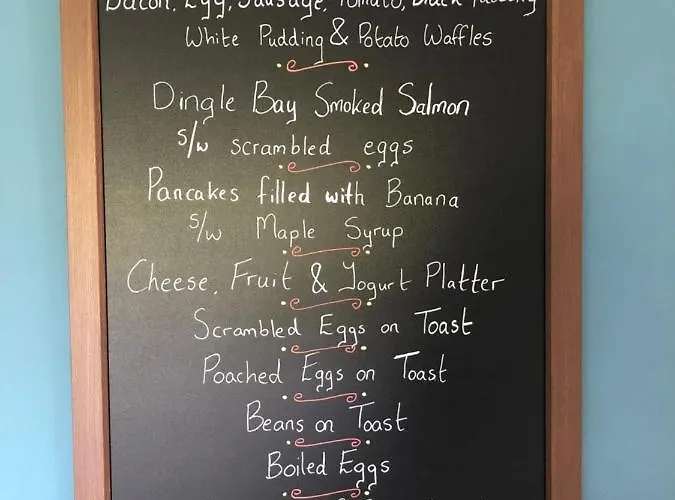 Bacon, Egg, Sausage, Tomato, Black Pudding
White Pudding & Potato Waffles
Dingle Bay Smoked Salmon
s/w scrambled eggs
Pancakes filled with Banana
s/w Maple Syrup
Cheese, Fruit & Yogurt Platter
Scrambled Eggs on Toast
Poached Eggs on Toast
Beans on Toast
Boiled Eggs